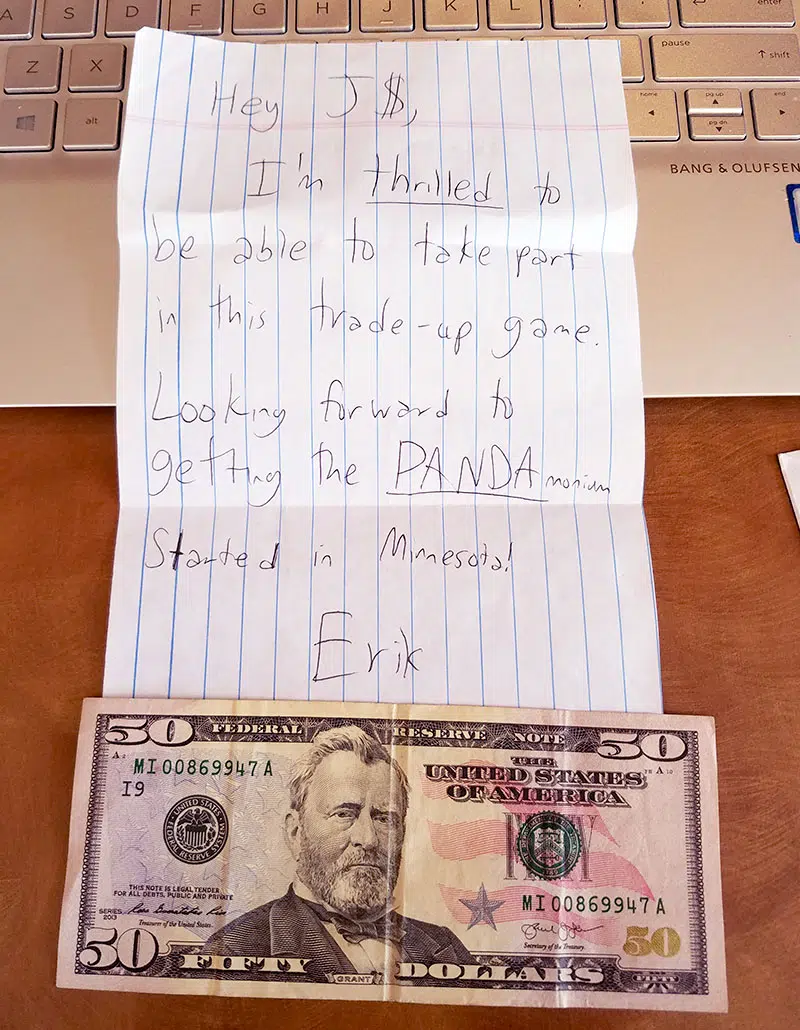 A S D F G H J K L : ; " ' enter
Z X pause ↑ shift
alt home ◄ pg up ▲ pg dn ▼ end ►
BANG & OLUFSEN
Hey J$,
I'm thrilled to
be able to take part
in this trade-up game.
Looking forward to
getting the PANDAmonium
Started in Minnesota!
Erik
50 FEDERAL RESERVE NOTE 50
MI 00869947 A
I9
THE
UNITED STATES
OF AMERICA
THIS NOTE IS LEGAL TENDER
FOR ALL DEBTS, PUBLIC AND PRIVATE
SERIES
2013
Treasurer of the United States.
MI 00869947 A
Secretary of the Treasury.
50 FIFTY GRANT DOLLARS 50